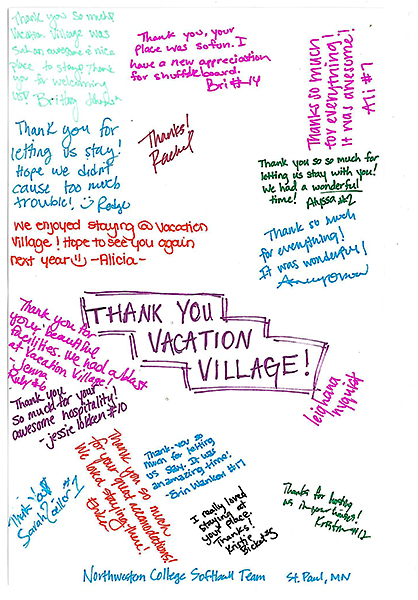 Thank you so much
Vacation Village was
such an awesome & nice
place to stay. Thank
you for welcoming
us! Brittany
Thank you, your
place was so fun. I
have a new appreciation
for shuffle board.
Bri #14
Thanks so much
for everything!
It was awesome!
Ali #7
Thank you for
letting us stay!
Hope we didn't
cause too much
trouble! ☺
Thanks!
Rachel
Thank you so so much for
letting us stay with you!
We had a wonderful
time! Alyssa #2
We enjoyed staying @ Vacation
Village! Hope to see you again
next year ☺ -Alicia-
Thank so much
for everything!
It was wonderful!
THANK YOU
VACATION
VILLAGE!
Thank you for
your beautiful
facilities. We had a blast
at Vacation Village!
- Jenna
#6
Thank you
so much for your
awesome hospitality!
- jessie #10
leighana
nyquist
Thank you so much
for your great accomodations!
We loved staying here!
Thank-you so
much for letting
us stay. It was
an amazing time!
- Erin #17
Thank You!
Sarah #1
I really loved
staying at
your place.
Thanks!
Kristie
Thanks for hosting
us in your homes!
Kristin #12
Northwestern College Softball Team St. Paul, MN